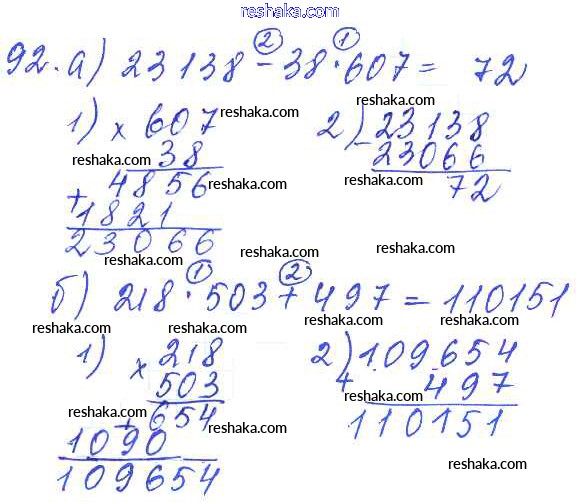 reshaka.com
92. а) 23138 - 38 · 607 = 72
② ①
1) × 607 2) - 23138
reshaka.com reshaka.com
38 23066
reshaka.com reshaka.com
+ 4856 72
reshaka.com
1821
23066
reshaka.com reshaka.com
б) 218 · 503 + 497 = 110151
① ②
reshaka.com reshaka.com reshaka.com
1) × 218 2) + 109654
503 497
reshaka.com
+ 654 110151
reshaka.com reshaka.com
1090
109654
reshaka.com